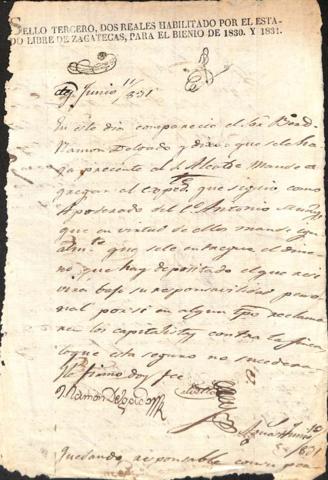 SELLO TERCERO, DOS REALES HABILITADO POR EL ESTA-
DO LIBRE DE ZACATECAS, PARA EL BIENIO DE 1830. Y 1831.
Junio 11/831
En este dia comparecio el
Ramon Delgado y dixo que se le ha
ga presente al S. Alcalde mande a
gregar el Exped.te que siguio como
Aposerado del C. Antonio
que en virtud de ello mande
que se le entregue el dine
ro que hay depositado el que reci
vira bajo su responsavilidad perso
nal por si en algun tpo reclama
ren los capitalistas contra la finca
lo que esta seguro no sucedera
Y lo firmo doy fee
Ramon Delgado
Junio 10
1831
Quedando responsable con su per